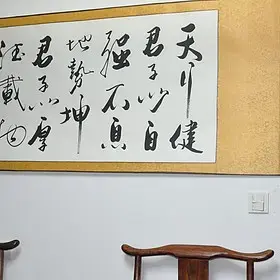 天行健
君子以自
强不息
地势坤
君子以厚
德載物